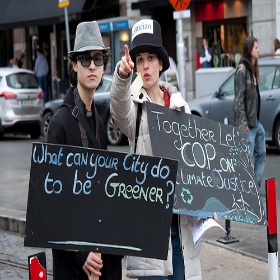 What can your City do
to be Greener?
Together Let's
COP on
Climate Justice